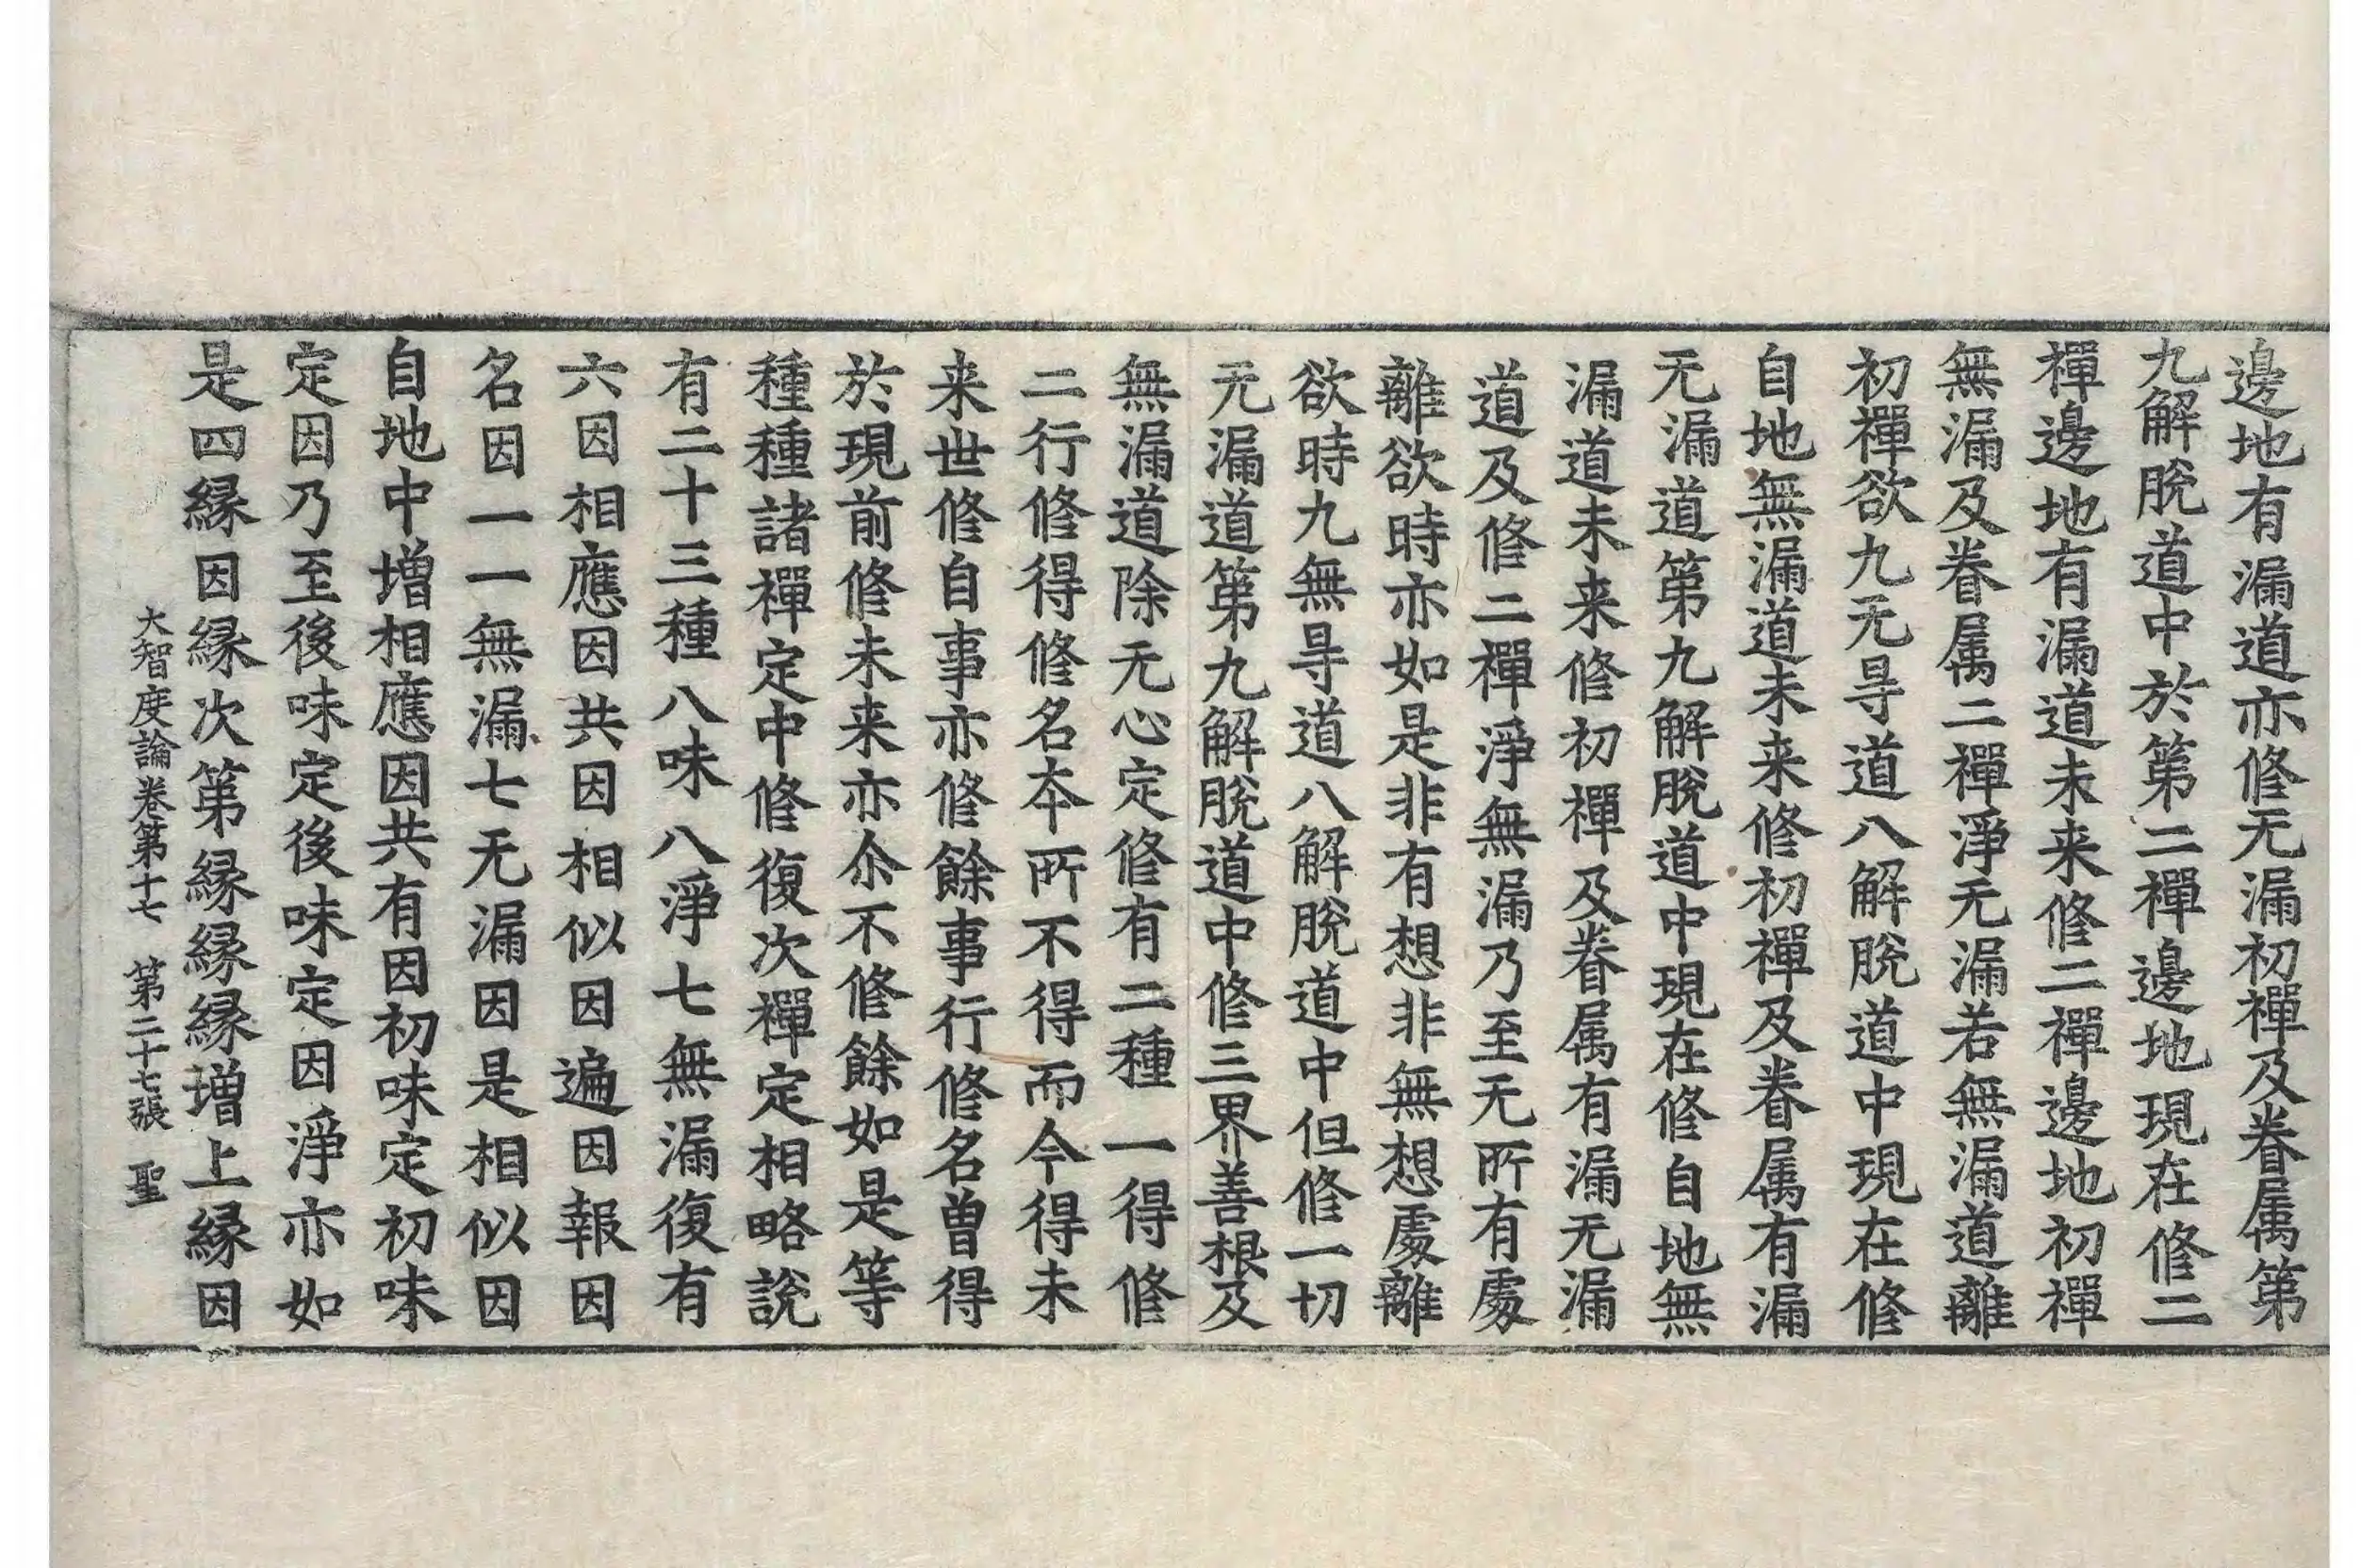 邊地有漏道亦修无漏初禪及眷属第
九解脫道中於第二禪邊地現在修二
禪邊地有漏道未来修二禪邊地初禪
無漏及眷属二禪淨无漏若無漏道離
初禪欲九无㝵道八解脫道中現在修
自地無漏道未来修初禪及眷属有漏
无漏道第九解脫道中現在修自地無
漏道未来修初禪及眷属有漏无漏
道及修二禪淨無漏乃至无所有處
離欲時亦如是非有想非無想處離
欲時九無㝵道八解脫道中但修一切
无漏道第九解脫道中修三界善根及
無漏道除无心定修有二種一得修
二行修得修名本所不得而今得未
来世修自事亦修餘事行修名曽得
於現前修未来亦尒不修餘如是等
種種諸禪定中修復次禪定相略說
有二十三種八味八淨七無漏復有
六因相應因共因相似因遍因報因
名因一一無漏七无漏因是相似因
自地中増相應因共有因初味定初味
定因乃至後味定後味定因淨亦如
是四縁因縁次第縁縁縁増上縁因
大智度論卷第十七 第二十七張 聖